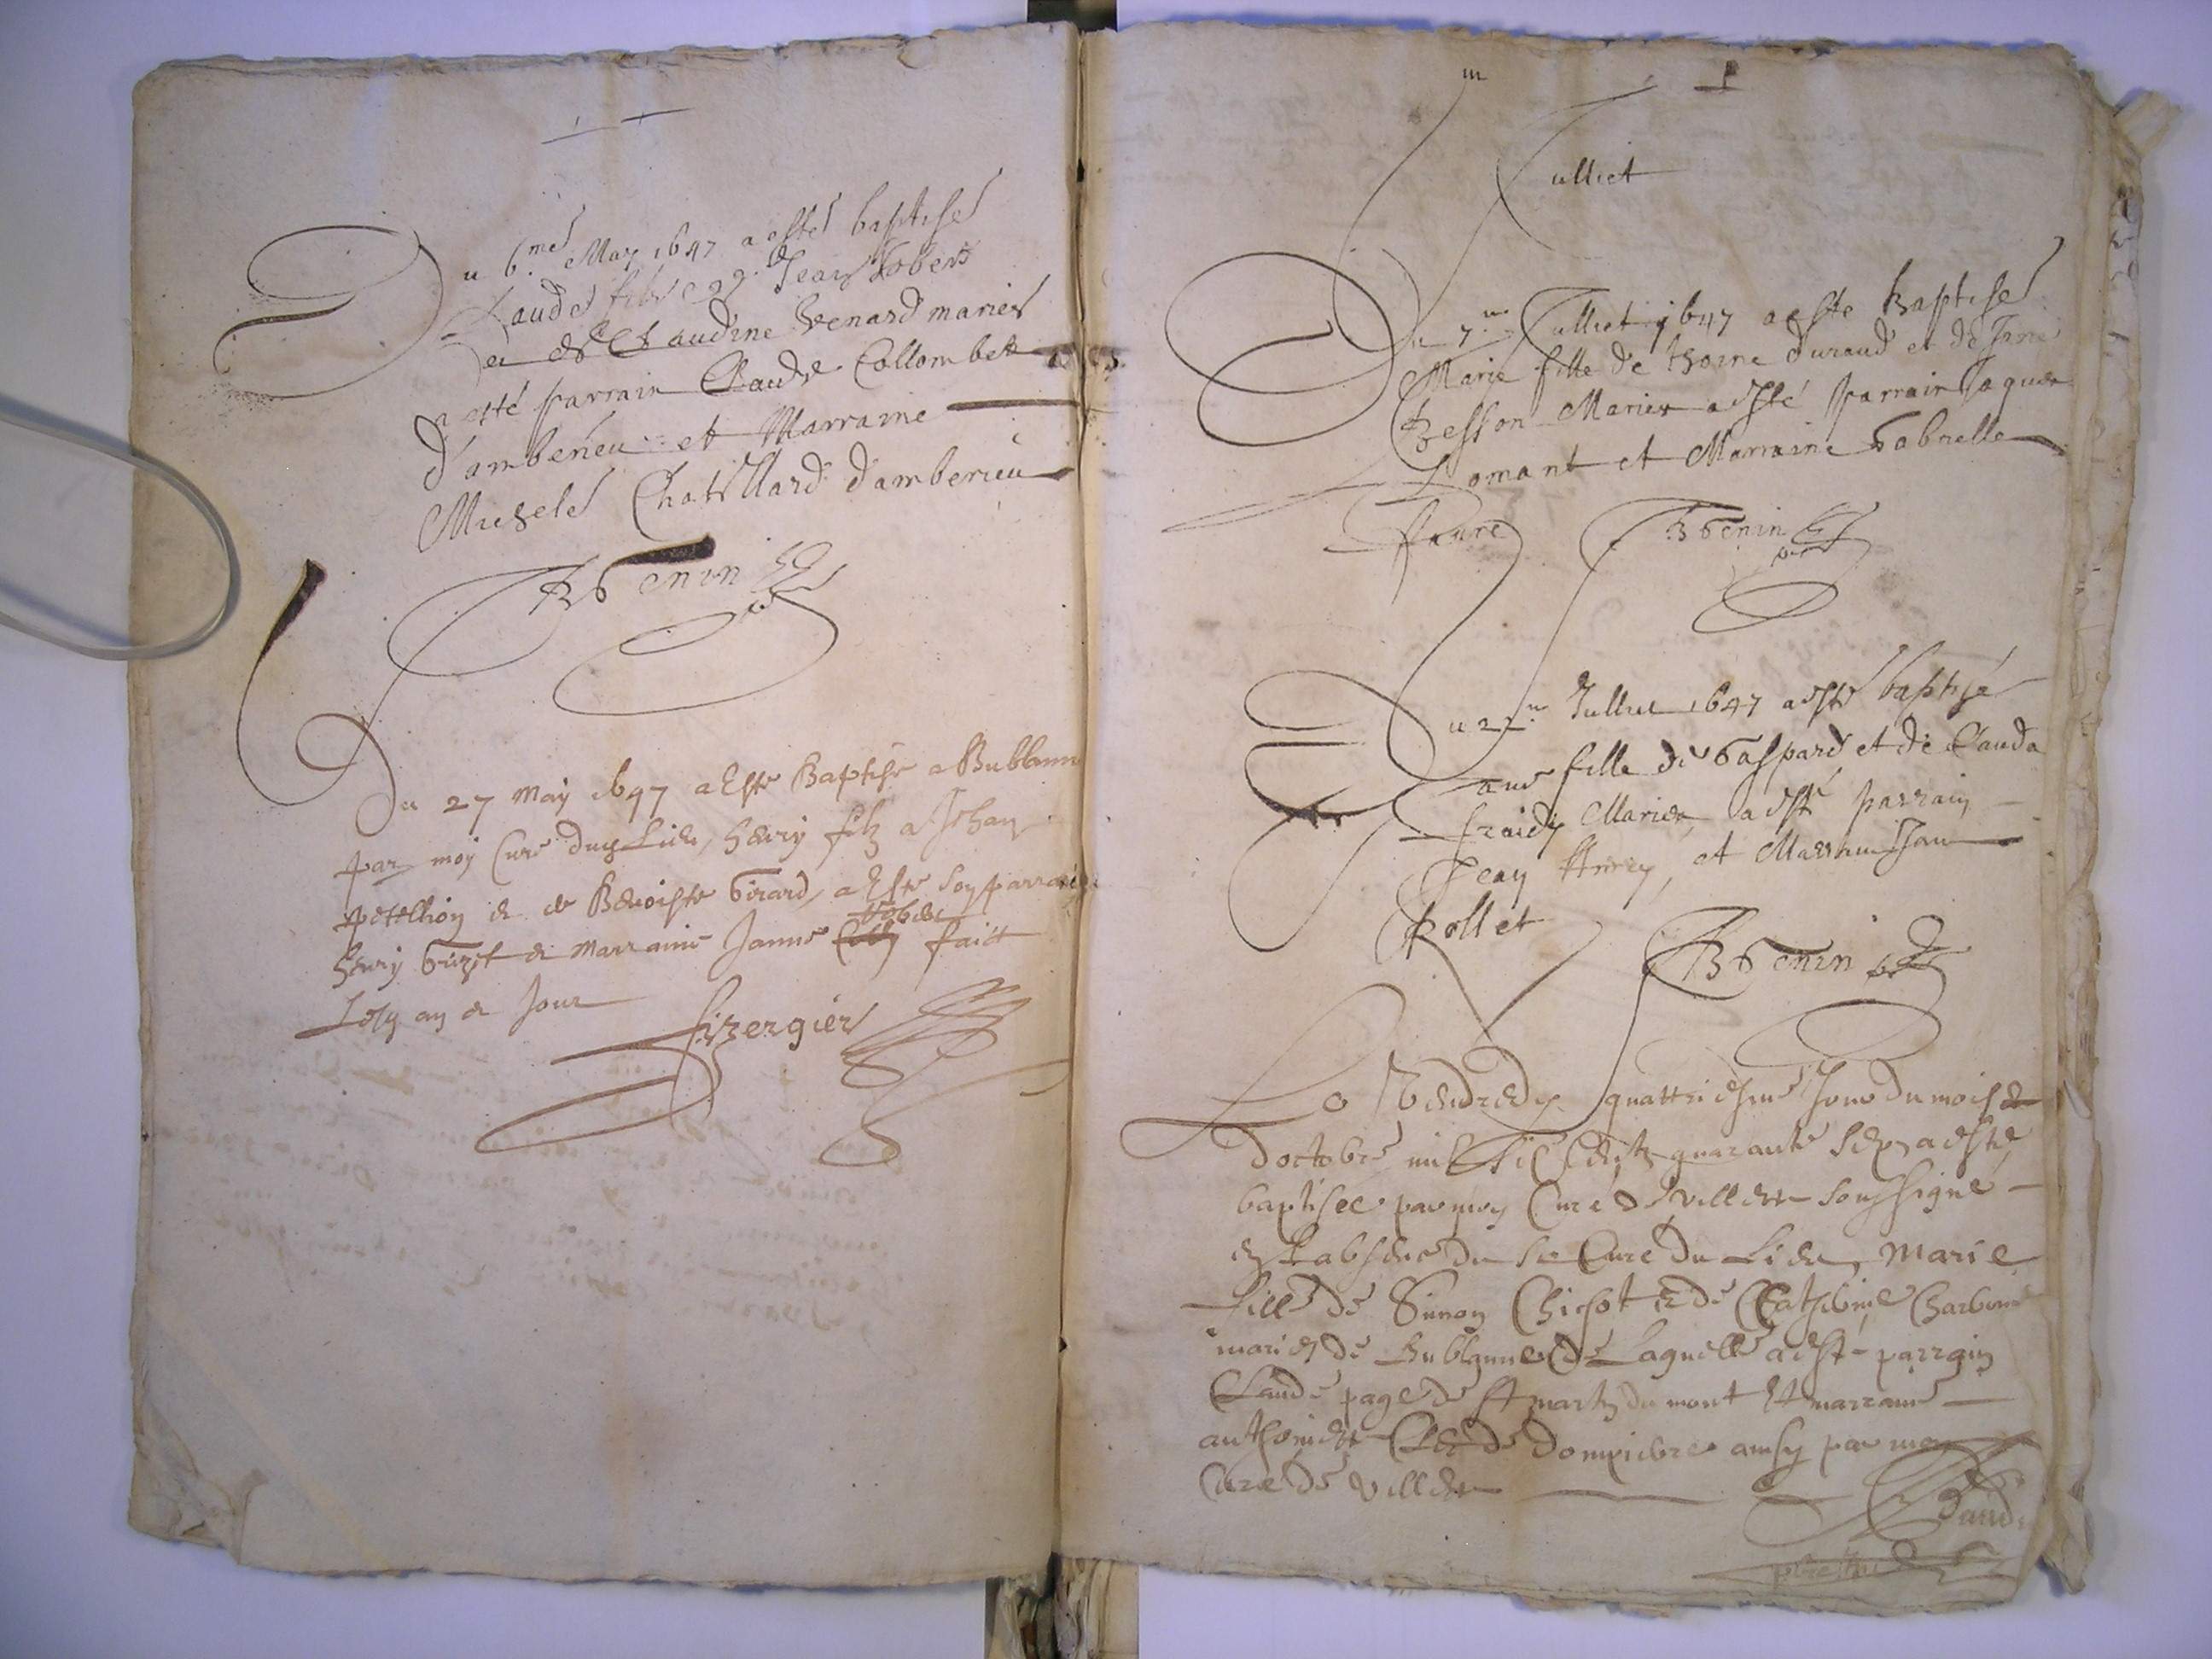 Du 6.me May 1647 a esté baptisé
Claude filz de Jean Robert
et de Claudine Venard mariés
a esté parrain Claude Collombet
d'amberieu et Marraine
Michele Chatillard d'amberieu
B Genin
Du 27 May 1647 a Esté Baptisé a Bublanne
par moy Curé dud Lieu, henry filz a Jehan
petellion et de Benoiste Girard, a Esté son parrain
henry et Marraine Janne Robert faict
Lesd an et Jour
firergier
m
Julliet
Du 7.me Julliet 1647 a esté Baptisé
Marie fille de Durand et de Jane
Besson Mariés a esté parrain Jaques
Lomant et Marraine Gabrielle
faure B Genin
Du 22.me Jullet 1647 a esté baptisé
Jane fille de Gaspard et de Clauda
Mariés a esté parrain
Jean et Marraine Jane
Pollet
B Genin
Le Vendredy quattriesme Jour du mois
d'octobre mil six Centz quarante sept a esté
baptisee par moy Curé de Villette soussigné
en L'absence du Sr Curé du Lieu, Marie
fille de Simon Chichot et de Catherine
mariés de Bublanne de Laquelle a esté parrain
Claude page de St martin du mont Et marraine
anthoinette de Dompierre ainsy par moy
Curé de Villette